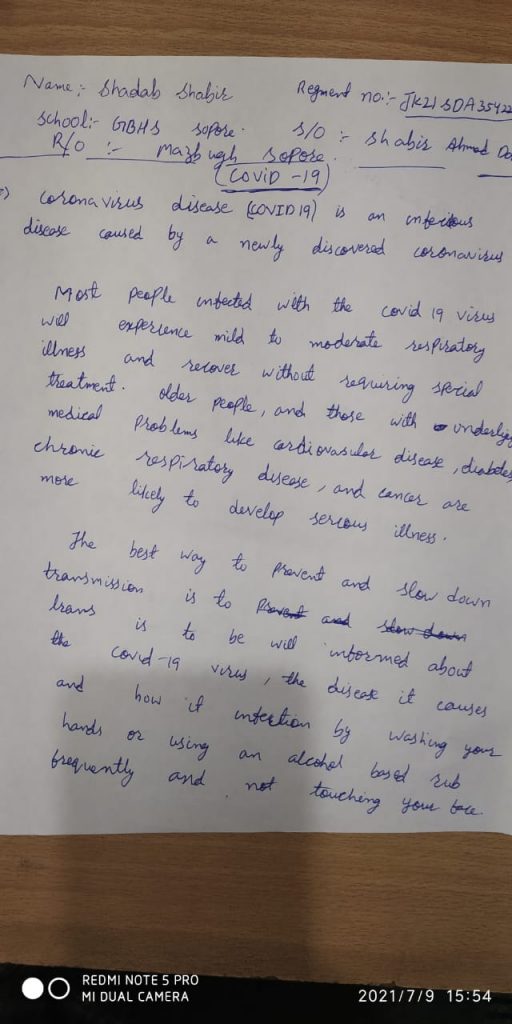 Name :- Shadab Shabir Regment no :- JK21SDA35422
School :- GBHS Sopore. S/O :- Shabir Ahmad
R/O :- Mazbugh Sopore.
(COVID -19)
Coronavirus disease (COVID19) is an infectious
disease caused by a newly discovered coronavirus
Most people infected with the covid 19 virus
will experience mild to moderate respiratory
illness and recover without requiring special
treatment. Older people, and those with underlying
medical problems like cardiovascular disease, diabetes,
chronic respiratory disease, and cancer are
more likely to develop serious illness.
The best way to prevent and slow down
transmission is to prevent and slow down
trans is to be will informed about
the covid-19 virus, the disease it causes
and how it infection by washing your
hands or using an alcohol based rub
frequently and not touching your face.
REDMI NOTE 5 PRO
MI DUAL CAMERA
2021/7/9 15:54